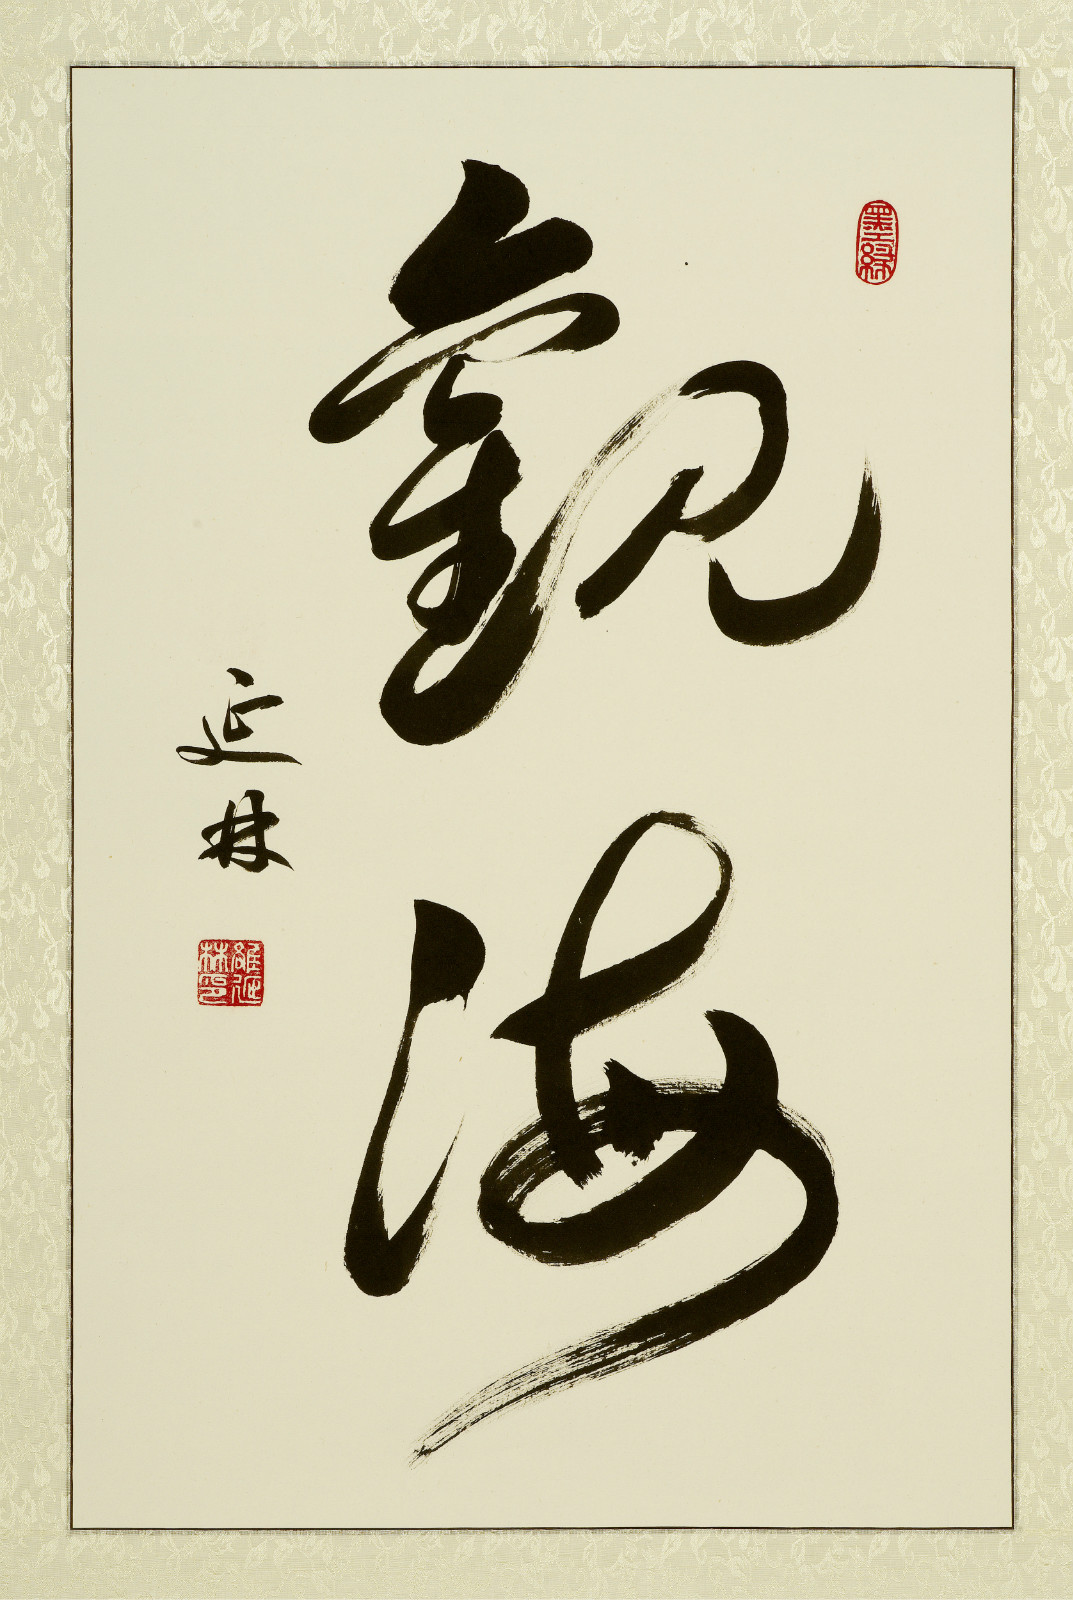 觀海
延林